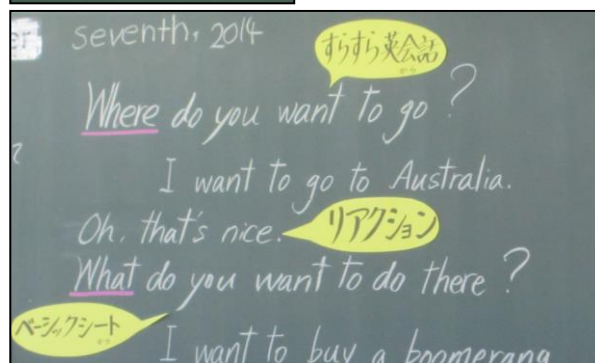 er seventh, 2014
すらすら英会話
から
Where do you want to go?
?
I want to go to Australia.
Oh, that's nice. リアクション
What do you want to do there?
ベーシックシート
から
I want to buy a boomerang